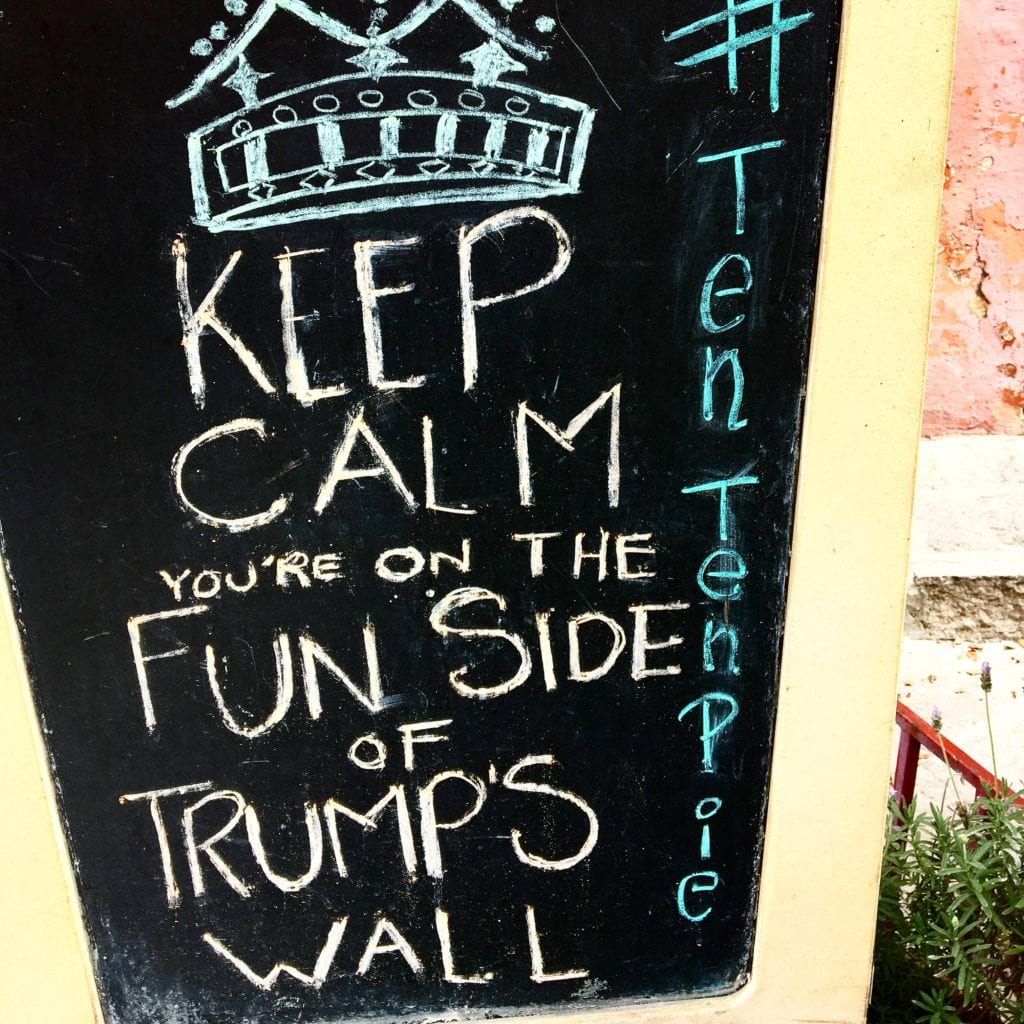 KEEP
CALM
YOU'RE ON THE
FUN SIDE
OF
TRUMP'S
WALL
#TenTenPie